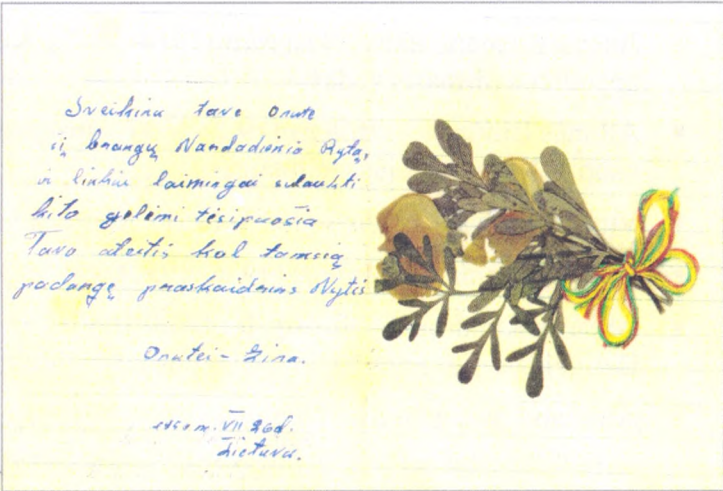 Sveikinu tave Onute
šį brangų Vardadienio Rytą,
ir linkiu laimingai sulaukti
kito gėlėmi tesipuošia
Tavo ateitis kol tamsią
padangę praskaidrins Vytis
Onutei - Zina.
m. VII 26d.
Lietuva.